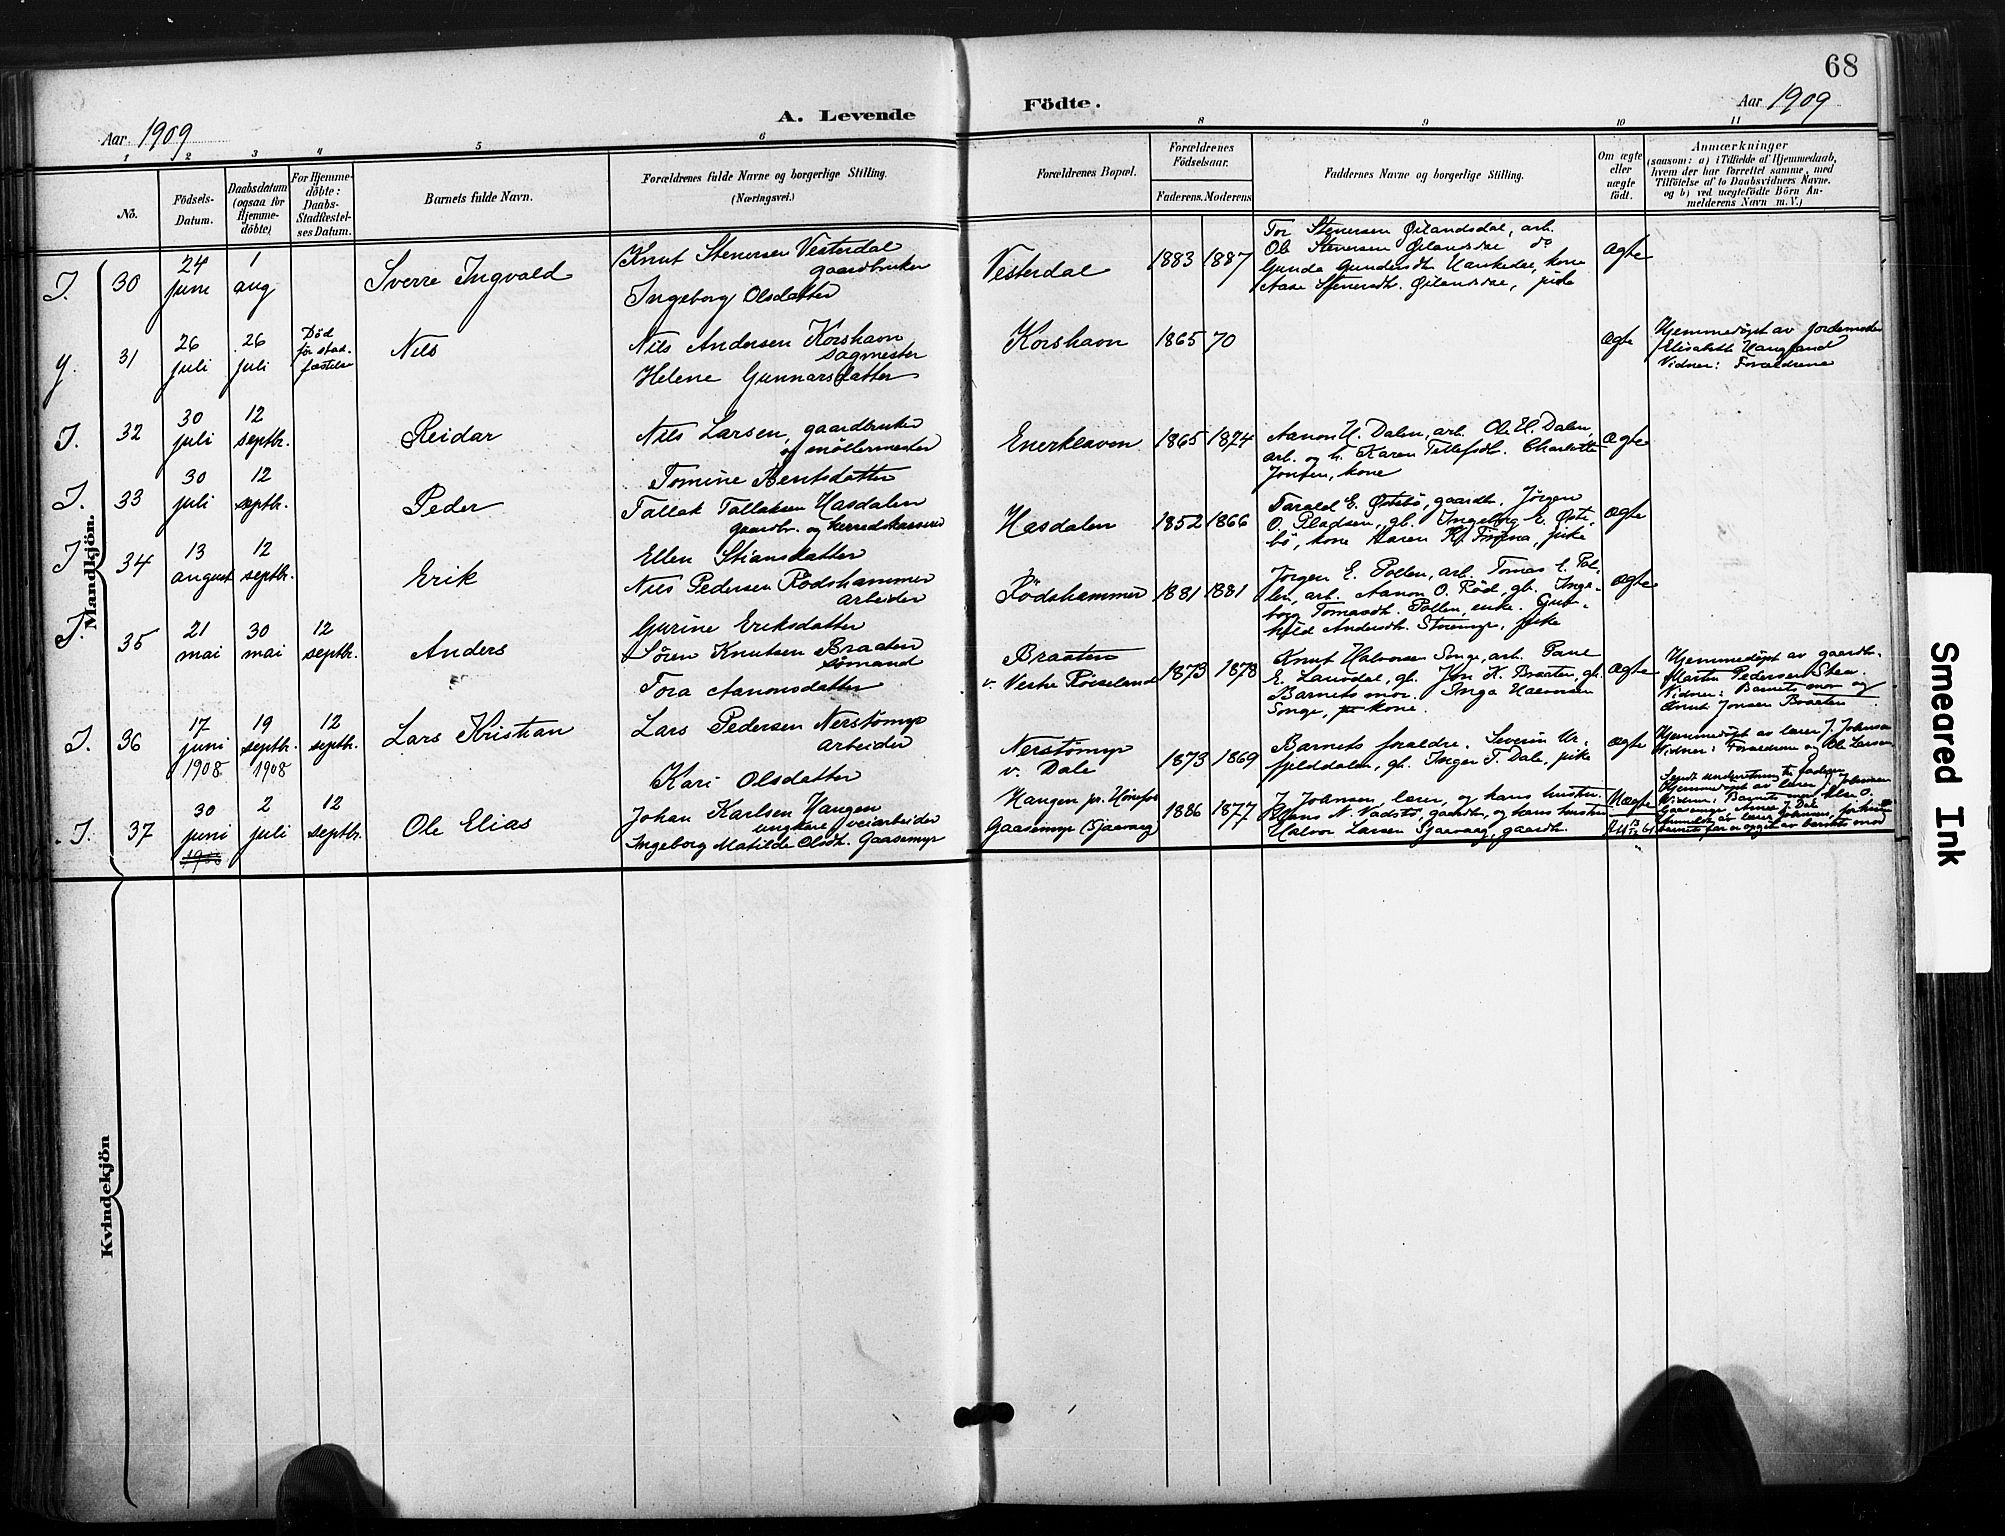 68
A. Levende Födte.
Aar 1909
Aar 1909
1 2 3 4 5 6 8 9 10 11
No.
Födsels-
Datum.
Daabsdatum
(ogsaa for
Hjemme-
döbte)
For Hjemme-
döbte:
Daabs-
Stadfæstel-
ses Datum.
Barnets fulde Navn.
Forældrenes fulde Navne og borgerlige Stilling.
(Næringsvei.)
Forældrenes Bopæl.
Forældrenes
Födselsaar.
Faderens. Moderens
Faddernes Navne og borgerlige Stilling.
Om ægte
eller
uægte
födt.
Anmærkninger
(saasom: a) i Tilfælde af Hjemmedaab,
hvem der har forrettet samme, med
Tilföielse af to Daabsvidners Navne,
og b) ved uægtefödte Börn An-
melderens Navn m. V.)
Mandkjön.
I. 30
24
juni
1
aug
Sverre Ingvald
Knut Stenersen Vesterdal
gaardbruker
Ingeborg Olsdatter
Vesterdal
1883 1887
Tor Stenersen Øilandsdal, arb.
Ole Stenersen Øilandsdal do
Gunda Gundersdtr. Hauskedal, kone
Aase Stenersdtr. Øilandsdal, pike
ægte
y. 31
26
juli
26
juli
Död
för stad-
fæstelse
Nils
Nils Andersen Korshavn
sagmester
Helene Gunnarsdatter
Korshavn
1865 70
ægte
Hjemmedöpt av jordemoder
Elisabeth Haugland
Vidner: Forældrene
I. 32
30
juli
12
septbr.
Reidar
Nils Larsen, gaardbruker
og møllermester
Tomine Bentsdatter
Enerkleven
1865 1874
Aanon H. Dalen, arb. Ole H. Dalen,
arb. og h. Karen Tellefsdtr. Charlotte
Jonsen, kone
ægte
I. 33
30
juli
12
septbr.
Peder
Tallak Tallaksen Hasdalen
gaardbr. og herredskasserer
Ellen Stiansdatter
Hasdalen
1852 1866
Tarald E. Østebö, gaardbr. Jörgen
O. Pladsen, gl. Ingeborg E. Øste-
bö, kone
ægte
I 34
13
august
12
septbr.
Erik
Nils Pedersen Rödshammer
arbeider
Gurine Eriksdatter
Rödshammer
1881 1881
Jörgen E. Pollen, arb. Tomas E. Pol-
len, arb. Aanon O. Röd, gl. Inge-
borg Tomasdtr. Pollen, enke. Gun-
hild Andersdtr. Storemyr, pike
ægte
I. 35
21
mai
30
mai
12
septbr.
Anders
Sören Knutsen Braaten
sömand
Tora Aanonsdatter
Braaten
v. Vestre Röiseland
1873 1878
Knut Halvorsen Songe, arb.
E. Lauvdal, gl. Jon K. Braaten, gl.
Barnets mor. Inga Halvorsen
Songe, kone.
ægte
Hjemmedöpt av gaardbr.
Martin Pedersen Stea
Vidner: Barnets mor og
Knut Jonsen Braaten
I. 36
17
juni
1908
19
septbr.
1908
12
septbr.
Lars Kristian
Lars Pedersen Nerstömyr
arbeider
Kari Olsdatter
Nerstömyr
v. Dale
1873 1869
Barnets forældre. Severin Ur-
fjelddalen, gl. Inger T. Dale, pike
ægte
Hjemmedöpt av lærer J. Johnsen
Vidner: Forældrene og Ole Larsen
I. 37
30
juni
1908
2
juli
12
septbr.
Ole Elias
Johan Karlsen Haugen
ungkarl veiarbeider
Ingeborg Matilde Olsdtr. Gaasemyr
Haugen pr. Hönefos
Gaasemyr (Sjaavaag
1886 1877
J. Johnsen, lærer, og hans hustru
Hans N. Vadstö, gaardbr, og hans hustru
Halvor Larsen Sjaavaag, gaardbr.
Uægte
Sendt underretning til faderen
Hjemmedöpt av lærer J. Johnsen
Vidner: Barnets mor
Anmeldt av lærer Johnsen
barnets far er opgit av barnets mor
Kvindekjön
Smeared Ink